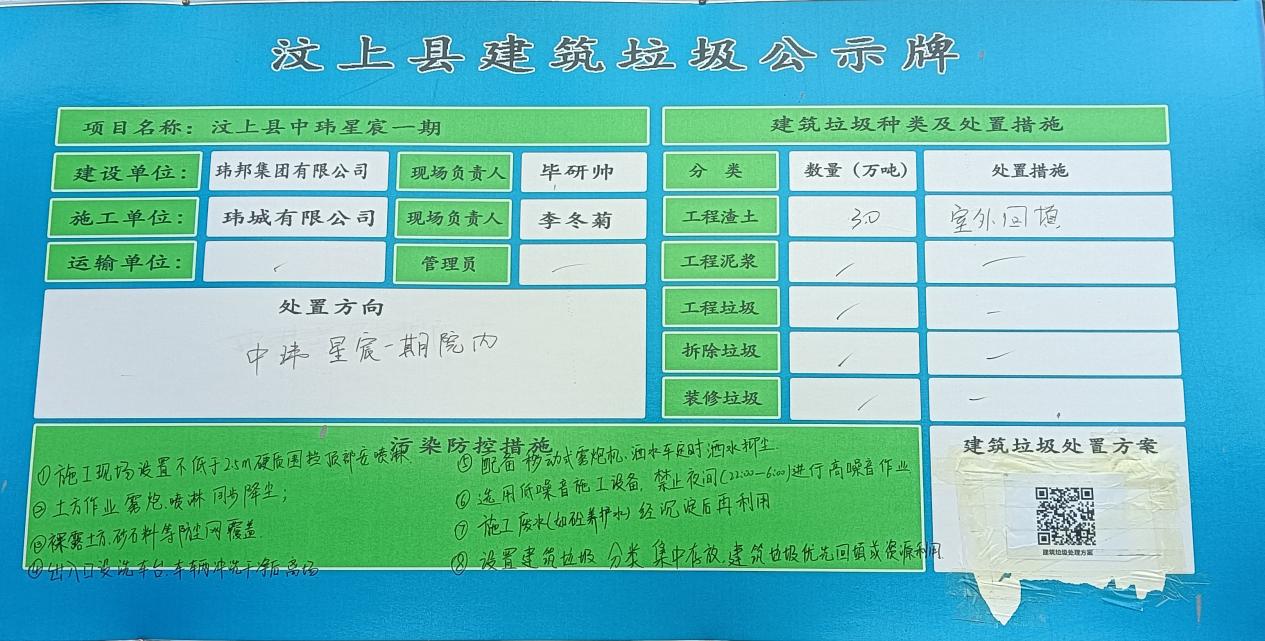 汶上县建筑垃圾公示牌
项目名称：汶上县中玮星宸一期
建设单位： 玮邦集团有限公司 现场负责人 毕研帅
施工单位： 玮城有限公司 现场负责人 李冬菊
运输单位： / 管理员 —
处置方向
中玮星宸一期院内
建筑垃圾种类及处置措施
分 类 数量（万吨） 处置措施
工程渣土 30 室外回填
工程泥浆 / —
工程垃圾 / —
拆除垃圾 / —
装修垃圾 / —
污染防控措施
①施工现场设置不低于2.5m硬质围挡顶部安喷淋
②土方作业雾炮、喷淋同步降尘；
③裸露土方、砂石料等防尘网覆盖
④出入口设洗车台、车辆冲洗干净后离场
⑤配备移动式雾炮机、洒水车定时洒水抑尘.
⑥选用低噪音施工设备，禁止夜间(22:00—6:00)进行高噪音作业
⑦施工废水(如砼养护水)经沉淀后再利用
⑧设置建筑垃圾分类集中存放,建筑垃圾优先回填或资源利用.
建筑垃圾处置方案
建筑垃圾处理方案